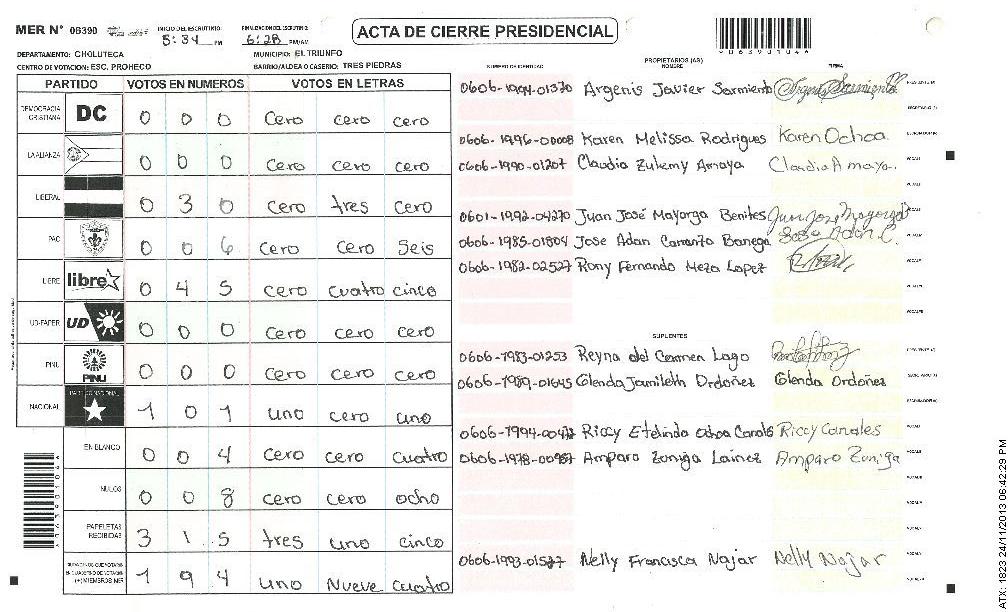 MER Nº 06390
INICIO DEL ESCRUTINIO:
5:34 PM
FINALIZACION DEL ESCRUTINIO:
6:28 PM/AM
ACTA DE CIERRE PRESIDENCIAL
0 6 3 9 0 1 0 4
DEPARTAMENTO: CHOLUTECA
MUNICIPIO: EL TRIUNFO
CENTRO DE VOTACION: ESC. PROHECO
BARRIO/ALDEA O CASERIO: TRES PIEDRAS
PARTIDO VOTOS EN NUMEROS VOTOS EN LETRAS
DEMOCRACIA CRISTIANA DC 0 0 0 cero cero cero
LA ALIANZA 0 0 0 cero cero cero
LIBERAL 0 3 0 cero tres cero
PAC 0 0 6 cero cero seis
LIBRE libre 0 4 5 cero cuatro cinco
UD-FAPER UD 0 0 0 cero cero cero
PINU PINU 0 0 0 cero cero cero
NACIONAL 1 0 1 uno cero uno
EN BLANCO 0 0 4 cero cero cuatro
NULOS 0 0 8 cero cero ocho
PAPELETAS RECIBIDAS 3 1 5 tres uno cinco
(+) MIEMBROS MER 1 9 4 uno Nueve cuatro
NUMERO DE IDENTIDAD
PROPIETARIOS (AS)
NOMBRE
FIRMA
0606-1994-01370 Argenis Javier Sarmiento Argenis Sarmiento
0606-1996-00008 Karen Melissa Rodrigues Karen Ochoa
0606-1990-01207 Claudia Zulemy Amaya Claudia Amaya
0601-1992-04270 Juan José Mayorga Benites Juan Jose Mayorga
0606-1985-01804 Jose Adan Carranza Banega Jose Adan C.
0606-1982-02527 Rony Fernando Meza Lopez
SUPLENTES
0606-1983-01253 Reyna del Carmen Lago
0606-1989-01645 Glenda Jamileth Ordoñez Glenda Ordoñez
Riccy Etelinda Ochoa Canales Riccy Canales
Amparo Zoniga Lainez Amparo Zoniga
Nelly Francisca Najar Nelly Najar
ATX: 1823 24/11/2013 06:42:29 PM